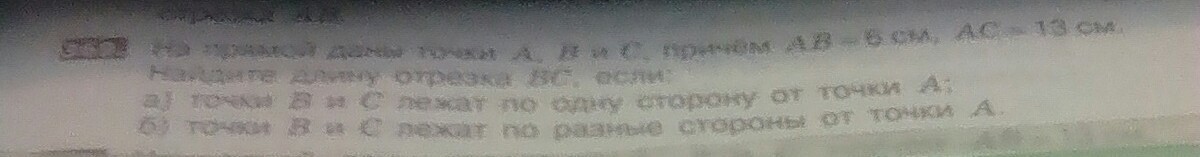 На прямой даны точки A, B и C, причём AB = 6 см, AC = 13 см.
Найдите длину отрезка BC, если:
а) точки B и C лежат по одну сторону от точки A;
б) точки B и C лежат по разные стороны от точки A.